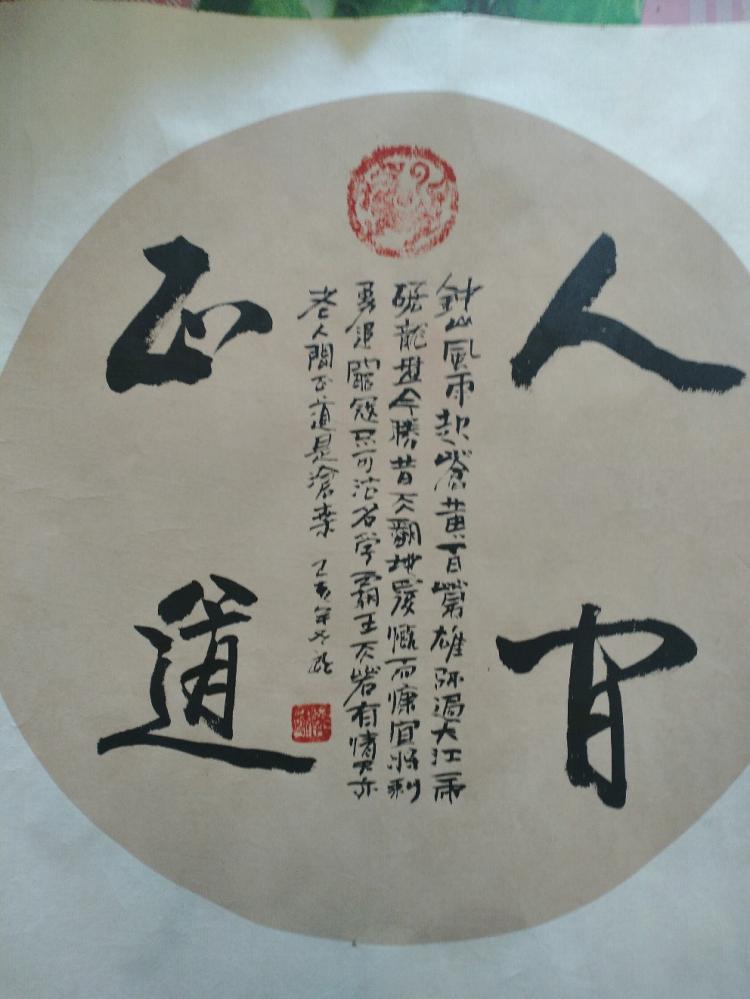 人间
鈡山風雨起蒼黄百萬雄师過大江虎
踞龍盘今勝昔天翻地覆慨而慷宜将剩
勇追窮寇不可沽名学霸王天若有情天亦
老人間正道是滄桑 己亥年冬
正道